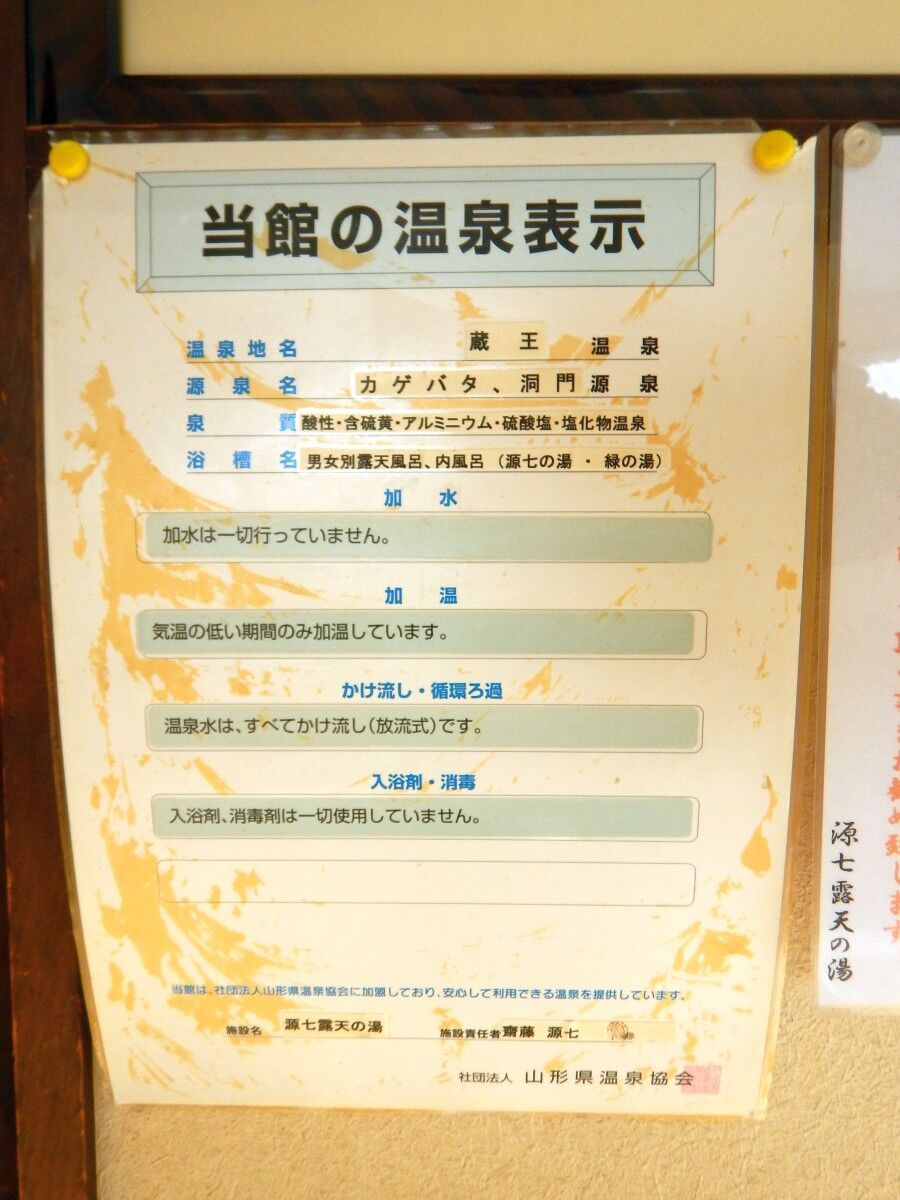 当館の温泉表示
温泉地名 蔵王 温泉
源泉名 カゲバタ、洞門 源泉
泉質 酸性・含硫黄・アルミニウム・硫酸塩・塩化物温泉
浴槽名 男女別露天風呂、内風呂（源七の湯・緑の湯）
加水
加水は一切行っていません。
加温
気温の低い期間のみ加温しています。
かけ流し・循環ろ過
温泉水は、すべてかけ流し（放流式）です。
入浴剤・消毒
入浴剤、消毒剤は一切使用していません。
当館は、社団法人山形県温泉協会に加盟しており、安心して利用できる温泉を提供しています。
施設名 源七露天の湯 施設責任者 齋藤 源七
社団法人 山形県温泉協会
源七露天の湯